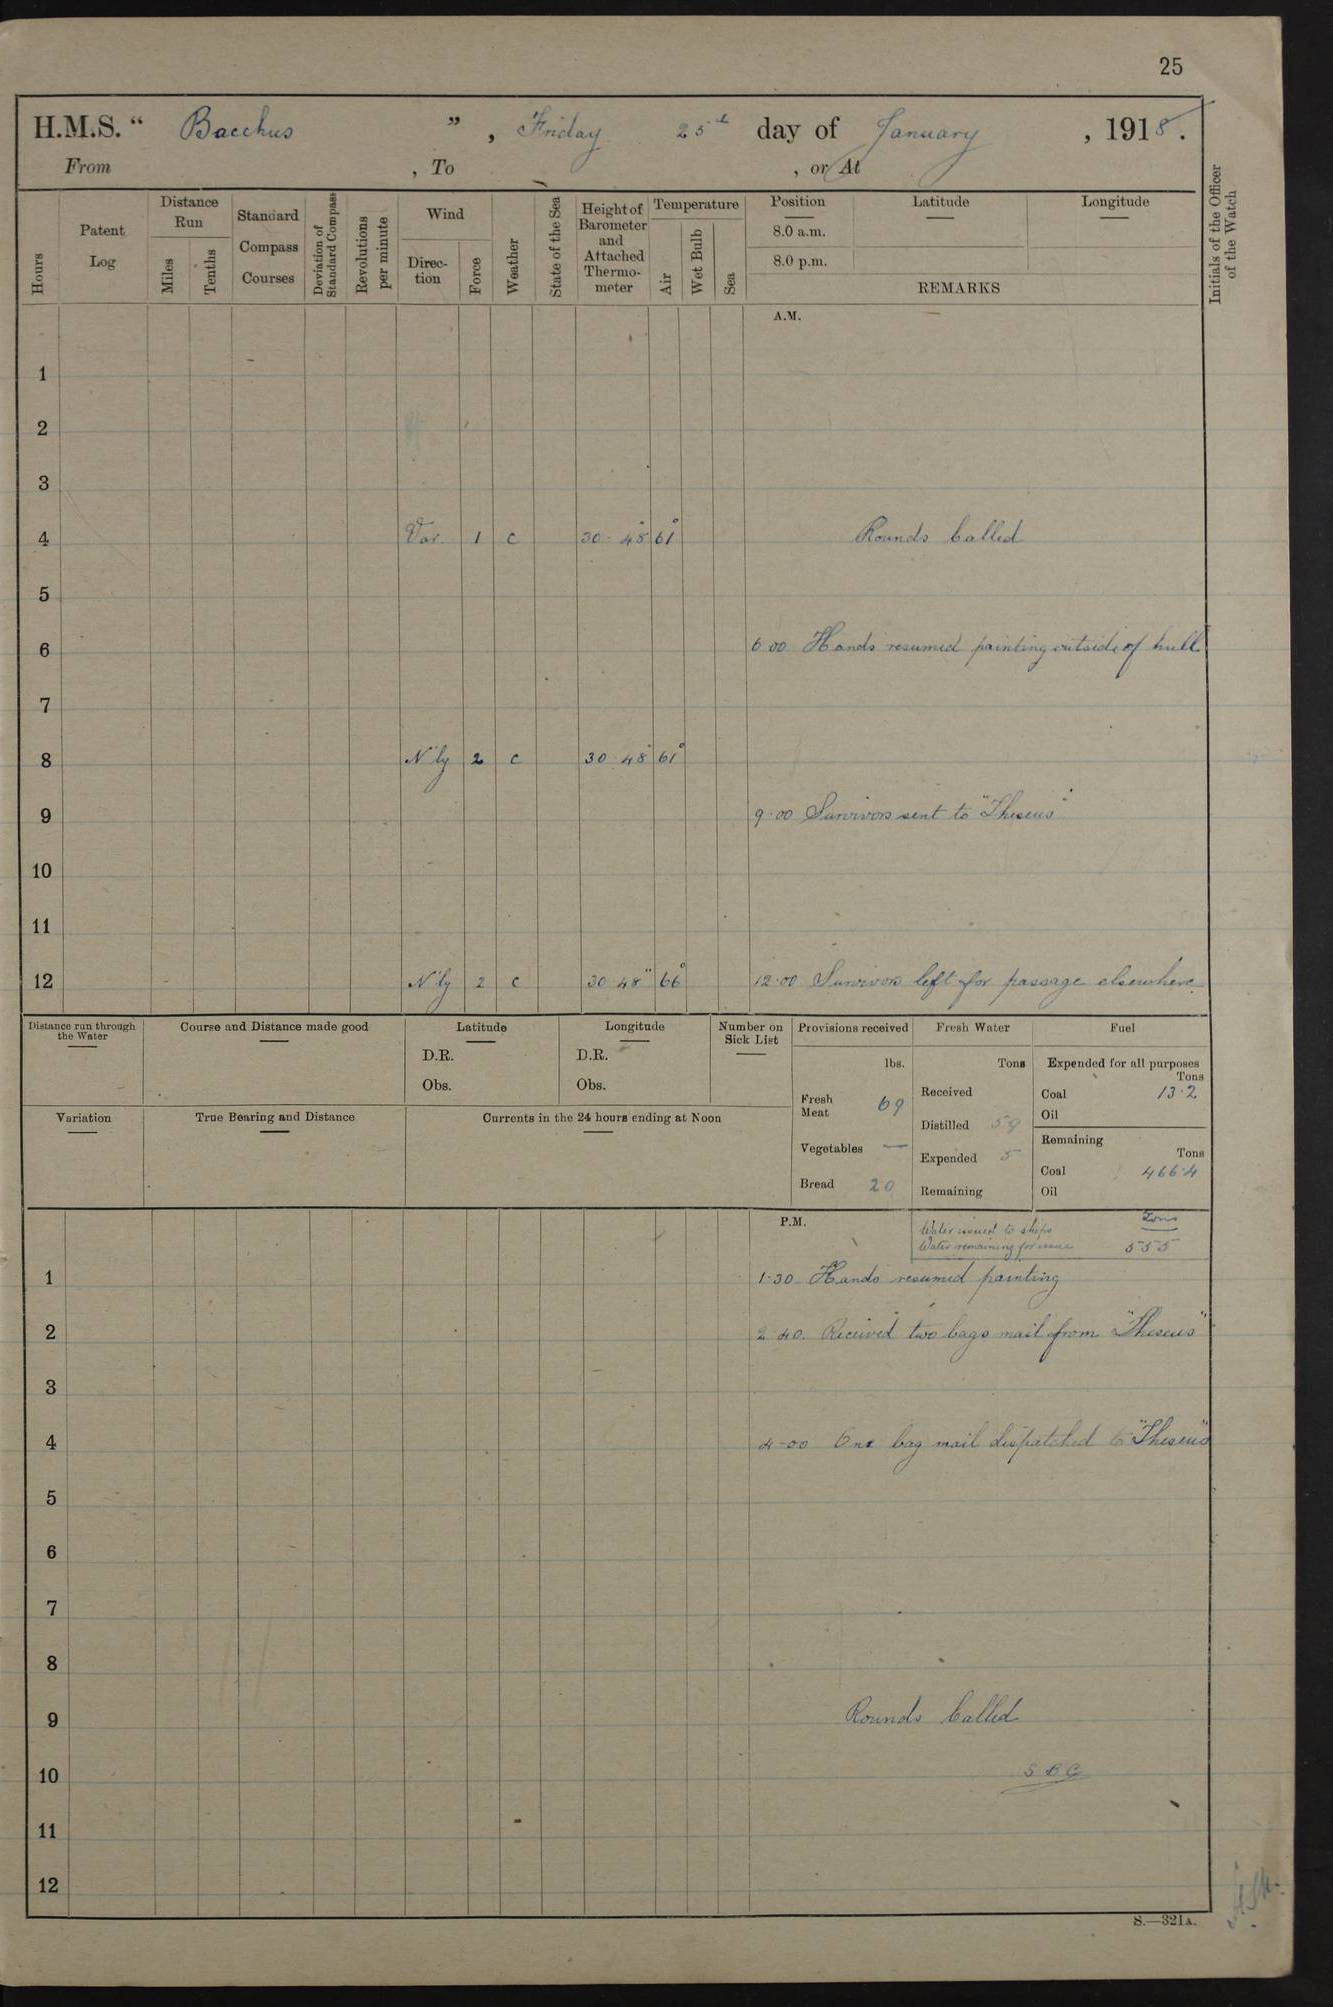 25
H.M.S. “ Bacchus ” , Friday 25th day of January , 1918.
From , To , or At
Hours
Patent Log
Distance Run
Miles
Tenths
Standard Compass Courses
Deviation of Standard Compass
Revolutions per minute
Wind
Direc-tion
Force
Weather
State of the Sea
Height of Barometer and Attached Thermo-meter
Temperature
Air
Wet Bulb
Sea
Position Latitude Longitude
8.0 a.m.
8.0 p.m.
REMARKS
Initials of the Officer of the Watch
A.M.
1
2
3
4 Var. 1 c 30·48 61° Rounds Called
5
6 6 00 Hands resumed painting outside of hull
7
8 N'ly 2 c 30 48 61°
9 9·00 Survivors sent to "Theseus"
10
11
12 N'ly 2 c 30 48 66° 12·00 Survivors left for passage elsewhere
Distance run through the Water
Course and Distance made good
Latitude
D.R.
Obs.
Longitude
D.R.
Obs.
Number on Sick List
Provisions received
lbs.
Fresh Meat 69
Vegetables —
Bread 20
Fresh Water
Tons
Received
Distilled 59
Expended 5
Remaining
Fuel
Expended for all purposes
Tons
Coal 13·2
Oil
Remaining
Tons
Coal 466·4
Oil
Variation
True Bearing and Distance
Currents in the 24 hours ending at Noon
P.M.
Water issued to ships Tons
Water remaining for issue 555
1 1·30 Hands resumed painting
2 2 40. Received two bags mail from "Theseus"
3
4 4-00 One bag mail dispatched to "Theseus"
5
6
7
8
9 Rounds Called
10
11
12
S.—321A.